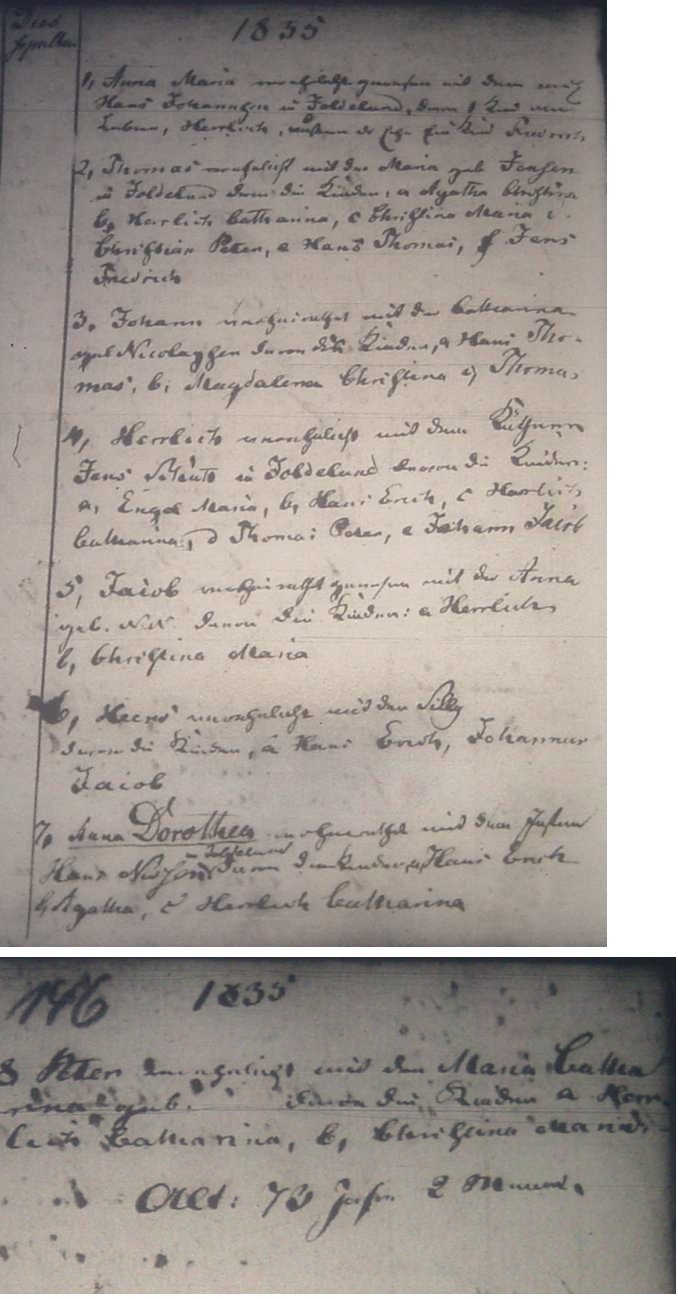 Dies
1835
1, Anna Maria verehelicht gewesen mit dem
Hans Johannsen in Joldelund, davon 1 Kind am
Leben, Herrlich, außer der Ehe ein Kind
2, Thomas verehelicht mit der Maria geb Jensen
in Joldelund davon die Kinder, a Agatha Christina
b, Herrlich Catharina, c Christina Maria
Christian Peter, e Hans Thomas, f Jens
Friedrich
3. Johann verheirathet mit der Catharina
geb Nicolaysen davon die Kinder, a Hans Tho-
mas, b, Magdalena Christina c, Thomas
4, Herrlich verehelicht mit dem Käthner
Jens in Joldelund davon die Kinder:
a, Engel Maria, b, Hans Erich, c Herrlich
Catharina, d Thomas Peter, e Johann Jacob
5, Jacob verheirathet gewesen mit der Anna
geb. N.N. davon die Kinder: a Herrlich
b, Christina Maria
6, verehelicht mit der Silly
davon die Kinder, a Hans Erich, Johannes
Jacob
7, Anna Dorothea verheirathet mit dem Insten
in Joldelund
Hans Nissen davon die Kinder, a, Hans Erich
b, Agatha, c Herrlich Catharina
146 1835
8 Peter verehelicht mit der Maria Catha
rina geb. davon die Kinder a Herr-
lich Catharina, b, Christina Maria
Alt: 73 Jahr 2 Monat.